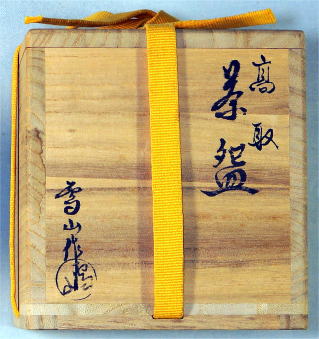 高取
茶盌
雪山作